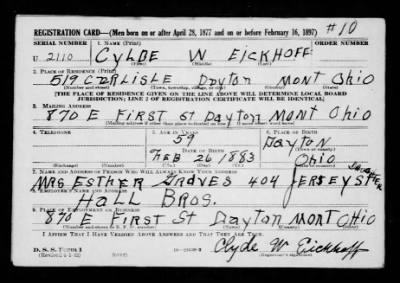 #10
REGISTRATION CARD—(Men born on or after April 28, 1877 and on or before February 16, 1897)
SERIAL NUMBER 1. NAME (Print)
U 2110 CYLDE W EICKHOFF
(First) (Middle) (Last)
2. PLACE OF RESIDENCE (Print)
519 CARLISLE Dayton MONT Ohio
(Number and street) (Town, township, village, or city) (County) (State)
[THE PLACE OF RESIDENCE GIVEN ON THE LINE ABOVE WILL DETERMINE LOCAL BOARD
JURISDICTION; LINE 2 OF REGISTRATION CERTIFICATE WILL BE IDENTICAL]
3. MAILING ADDRESS
870 E FIRST ST Dayton MONT Ohio
[Mailing address if other than place indicated on line 2. If same insert word same]
4. TELEPHONE 5. AGE IN YEARS 6. PLACE OF BIRTH
59 Dayton
DATE OF BIRTH (Town or county)
FEB 26 1883 Ohio
(Exchange) (Number) (Mo.) (Day) (Yr.) (State or country)
7. NAME AND ADDRESS OF PERSON WHO WILL ALWAYS KNOW YOUR ADDRESS
MRS ESTHER GROVES 404 JERSEY ST
8. EMPLOYER'S NAME AND ADDRESS
HALL BROS.
9. PLACE OF EMPLOYMENT OR BUSINESS
870 E FIRST St Dayton MONT Ohio
(Number and street or R. F. D. number) (Town) (County) (State)
I AFFIRM THAT I HAVE VERIFIED ABOVE ANSWERS AND THAT THEY ARE TRUE.
D. S. S. Form 1
(Revised 4-1-42) (over) Clyde W Eickhoff
(Registrant's signature)